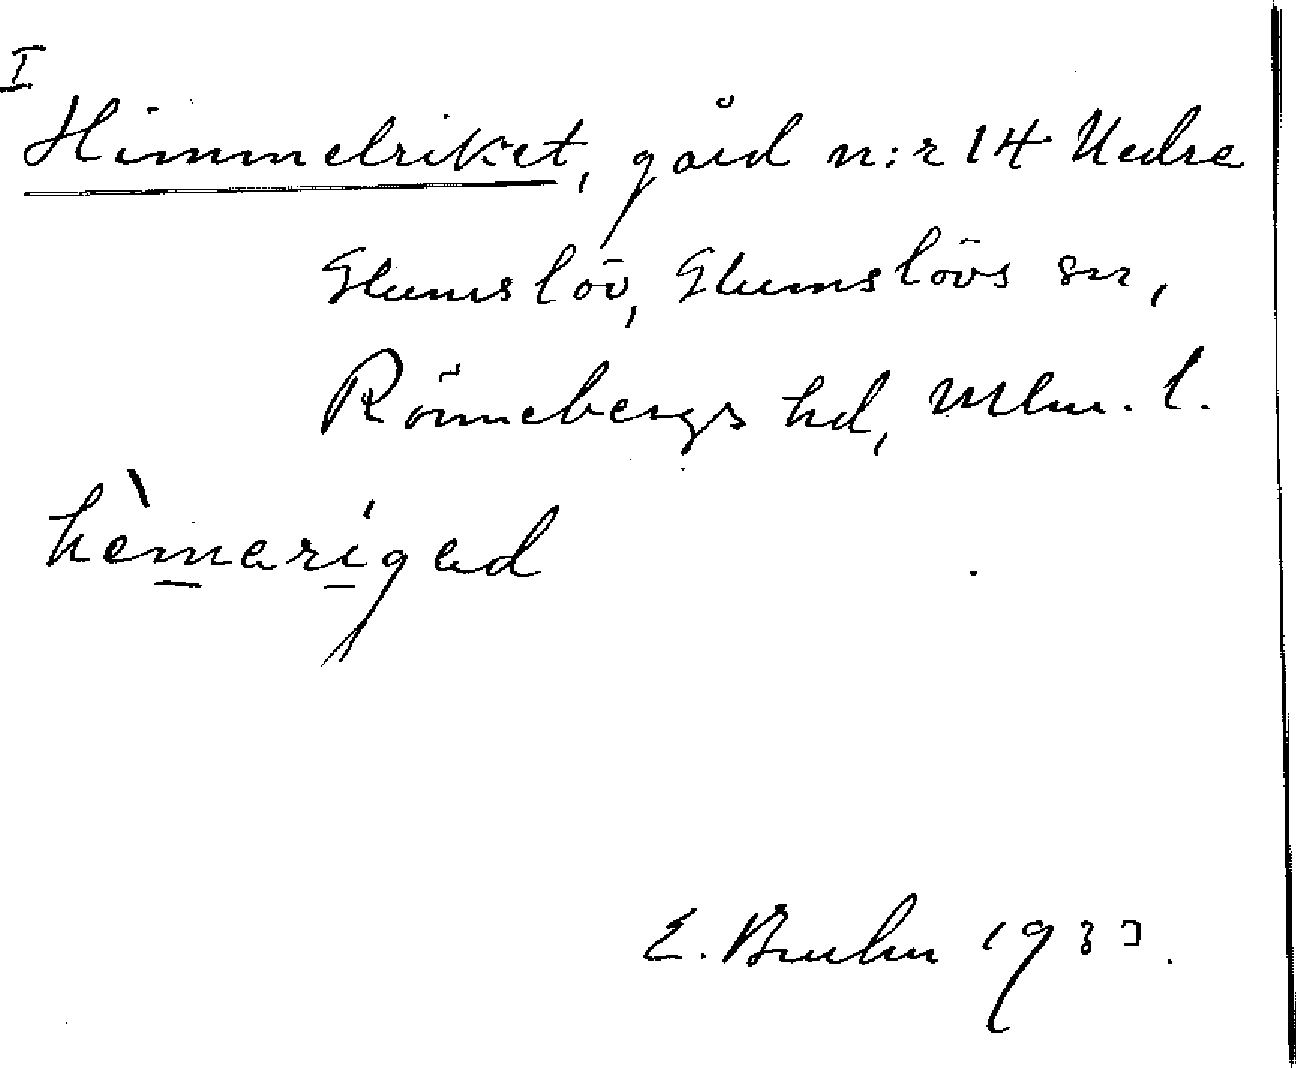 I
Himmelriket, gård n:r 14 Nedre
Glumslöv, Glumslövs sn,
Rönnebergs hd, Mlm. l.
hèmariged
E. Bruhn 1933.